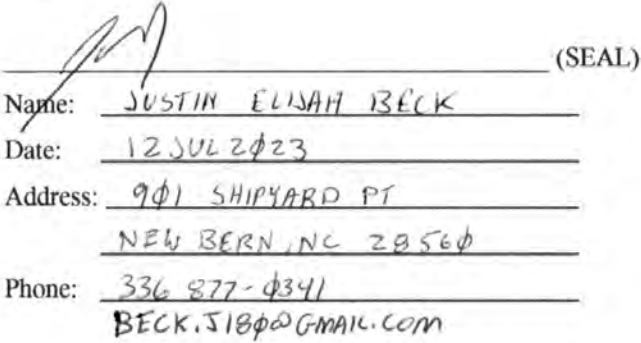 (SEAL)
Name: JUSTIN ELIJAH BECK
Date: 12 JUL 2023
Address: 901 SHIPYARD PT
NEW BERN, NC 28560
Phone: 336 877-0341
BECK.J180@GMAIL.COM